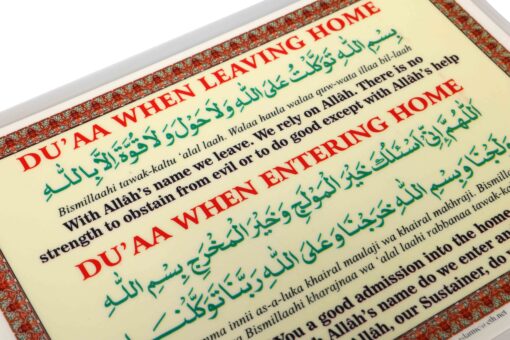 DU'AA WHEN LEAVING HOME
بِسْمِ اللهِ تَوَكَّلْتُ عَلَى اللهِ وَلَا حَوْلَ وَلَا قُوَّةَ إِلَّا بِاللهِ
Bismillaahi tawak-kaltu 'alal laah. Walaa haula walaa quw-wata illaa bil-laah
With Allâh's name we leave. We rely on Allâh. There is no
strength to obstain from evil or to do good except with Allâh's help
DU'AA WHEN ENTERING HOME
اَللّٰهُمَّ اِنِّىْ اَسْئَلُكَ خَيْرَ الْمَوْلَجِ وَخَيْرَ الْمَخْرَجِ بِسْمِ اللهِ
وَلَجْنَا وَبِسْمِ اللهِ خَرَجْنَا وَعَلَى اللهِ رَبِّنَا تَوَكَّلْنَا
innii as-a-luka khairal maulaji wa khairal makhraji. Bismil
Bismillaahi kharajnaa wa 'alal laahi rabbanaa tawak-kal
You a good admission into the home
Allâh's name do we enter an
Allâh, our Sustainer, do